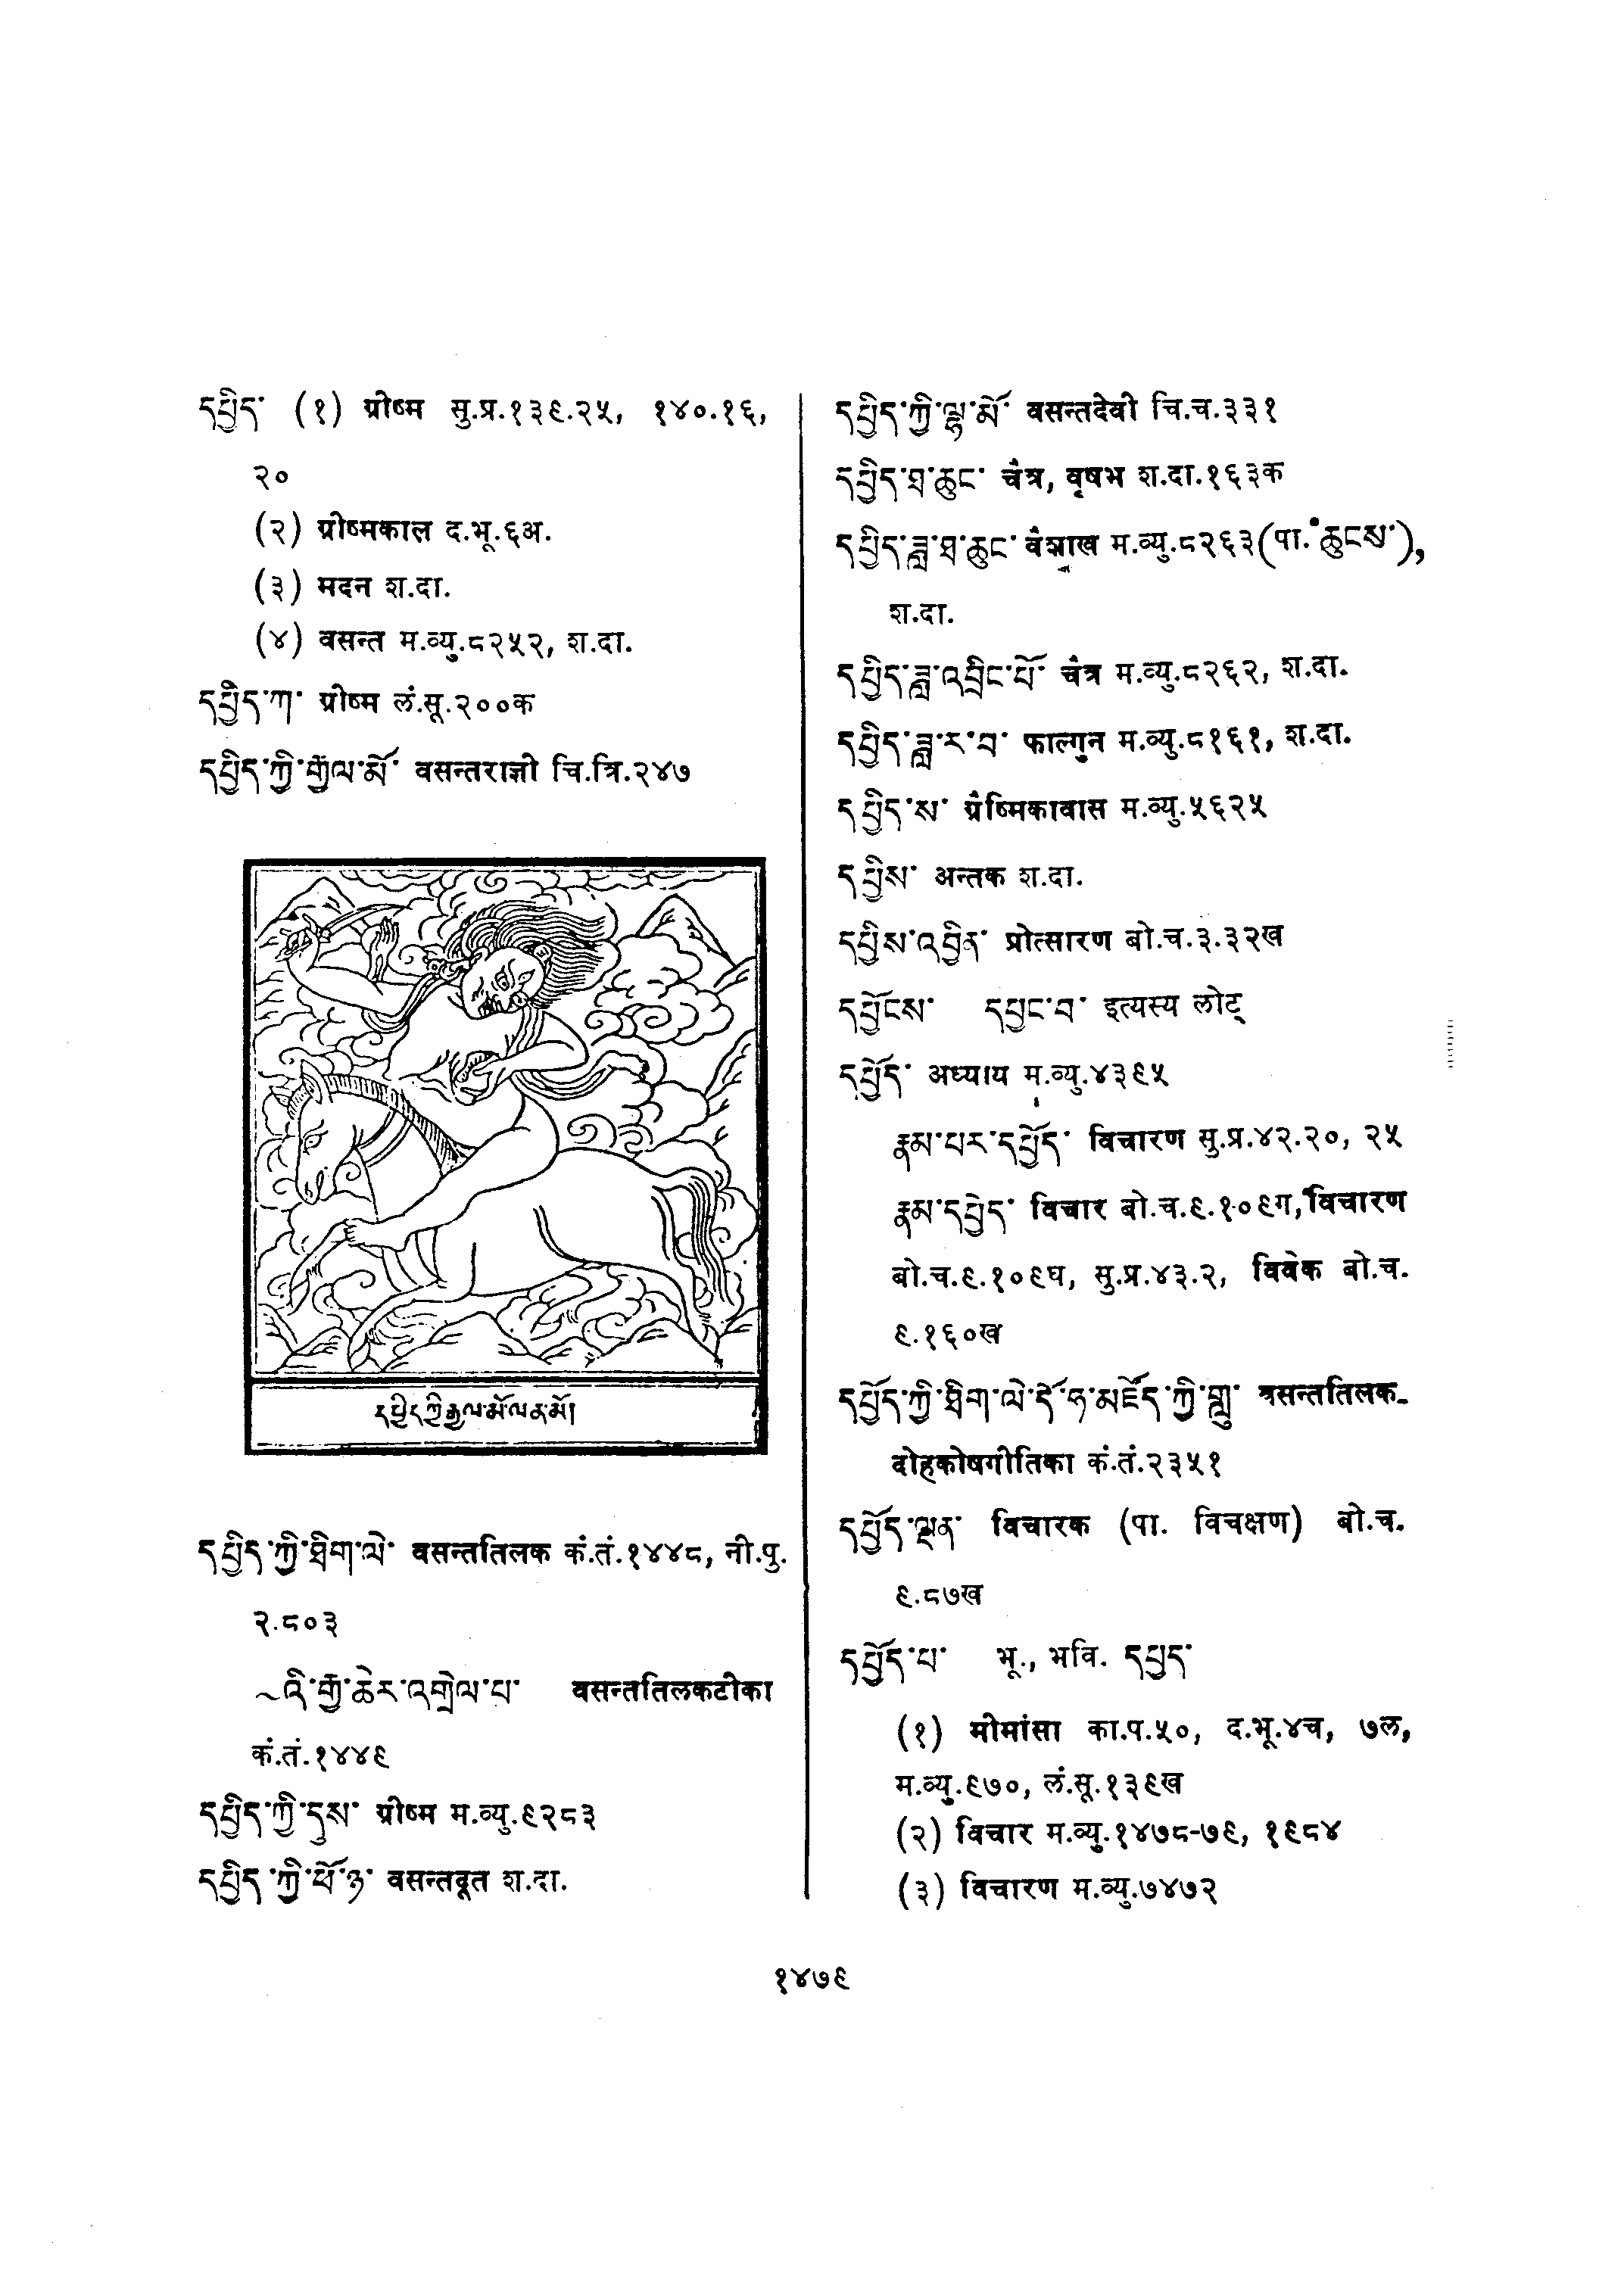 དཔྱིད་ (१) ग्रीष्म सु.प्र.१३९.२५, १४०.१६,
२०
(२) ग्रीष्मकाल द.भू.६अ.
(३) मदन श.दा.
(४) वसन्त म.व्यु.८२५२, श.दा.
དཔྱིད་ཀ་ ग्रीष्म लं.सू.२००क
དཔྱིད་ཀྱི་རྒྱལ་མོ་ वसन्तराज्ञी चि.त्रि.२४७
དཔྱིད་ཀྱི་རྒྱལ་མོ་ལ་ན་མོ།
དཔྱིད་ཀྱི་ཐིག་ལེ་ वसन्ततिलक कं.तं.१४४८, नी.पु.
२.८०३
~འི་རྒྱ་ཆེར་འགྲེལ་པ་ वसन्ततिलकटीका
कं.तं.१४४९
དཔྱིད་ཀྱི་དུས་ ग्रीष्म म.व्यु.९२८३
དཔྱིད་ཀྱི་ཕོ་ཉ་ वसन्तदूत श.दा.
དཔྱིད་ཀྱི་ལྷ་མོ་ वसन्तदेवी चि.च.३३१
དཔྱིད་ཐ་ཆུང་ चैत्र, वृषभ श.दा.१६३क
དཔྱིད་ཟླ་ཐ་ཆུང་ वैशाख म.व्यु.८२६३(पा.॰ཆུངས་),
श.दा.
དཔྱིད་ཟླ་འབྲིང་པོ་ चैत्र म.व्यु.८२६२, श.दा.
དཔྱིད་ཟླ་ར་བ་ फाल्गुन म.व्यु.८१६१, श.दा.
དཔྱིད་ས་ ग्रैष्मिकावास म.व्यु.५६२५
དཔྱིས་ अन्तक श.दा.
དཔྱིས་འབྱིན་ प्रोत्सारण बो.च.३.३२ख
དཔྱོངས་ དཔྱང་བ་ इत्यस्य लोट्
དཔྱོད་ अध्याय म.व्यु.४३९५
རྣམ་པར་དཔྱོད་ विचारण सु.प्र.४२.२०, २५
རྣམ་དཔྱོད་ विचार बो.च.९.१०९ग, विचारण
बो.च.९.१०९घ, सु.प्र.४३.२, विवेक बो.च.
९.१६०ख
དཔྱོད་ཀྱི་ཐིག་ལེ་དོ་ཧ་མཛོད་ཀྱི་གླུ་ वसन्ततिलक-
दोहकोषगीतिका कं.तं.२३५१
དཔྱོད་ལྡན་ विचारक (पा. विचक्षण) बो.च.
९.८७ख
དཔྱོད་པ་ भू., भवि. དཔྱད་
(१) मीमांसा का.प.५०, द.भू.४च, ७ल,
म.व्यु.९७०, लं.सू.१३९ख
(२) विचार म.व्यु.१४७८-७९, १९८४
(३) विचारण म.व्यु.७४७२
१४७९